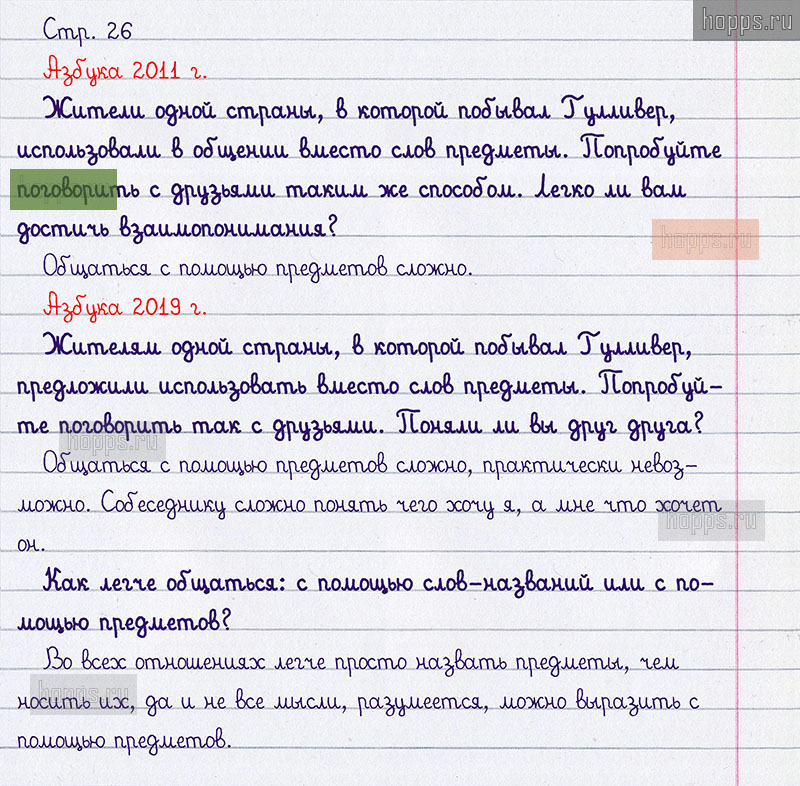 hopps.ru
Стр. 26
Азбука 2011 г.
Жители одной страны, в которой побывал Гулливер,
использовали в общении вместо слов предметы. Попробуйте
поговорить с друзьями таким же способом. Легко ли вам
достичь взаимопонимания?
hopps.ru
Общаться с помощью предметов сложно.
Азбука 2019 г.
Жителям одной страны, в которой побывал Гулливер,
предложили использовать вместо слов предметы. Попробуй-
те поговорить так с друзьями. Поняли ли вы друг друга?
hopps.ru
Общаться с помощью предметов сложно, практически невоз-
можно. Собеседнику сложно понять чего хочу я, а мне что хочет
hopps.ru
он.
Как легче общаться: с помощью слов-названий или с по-
мощью предметов?
Во всех отношениях легче просто назвать предметы, чем
носить их, да и не все мысли, разумеется, можно выразить с
hopps.ru
помощью предметов.